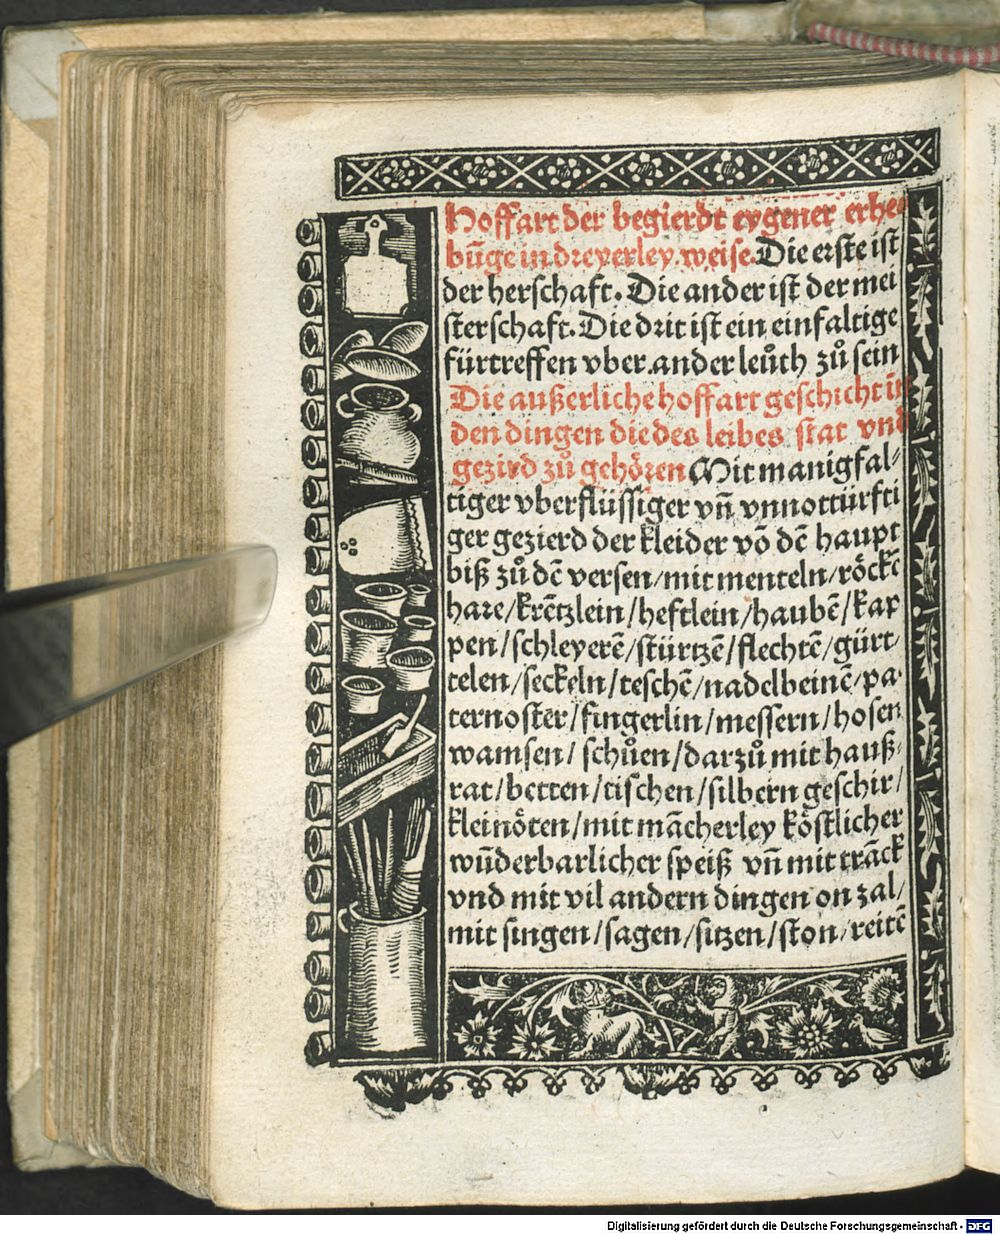 Hoffart der begierdt eygener erhe
bũge in dreyerley weise. Die erste ist
der herschafft. Die ander ist der mei
sterschafft. Die drit ist ein einfaltige
fürtreffen vber ander leüth zů sein
Die außerliche hoffart geschicht in
den dingen die des leibes stat vnd
gezierd zů gehören Mit manigfal⸗
tiger vberflüssiger vñ vnnottürfti
ger gezierd der kleider võ dẽ haupt
biß zů dẽ versen/mit menteln/röckẽ
hare/krẽtzlein/heftlein/haubẽ/kap
pen/schleyerẽ/stürtzẽ/flechtẽ/gürt⸗
telen/seckeln/teschẽ/nadelbeinẽ/pa⸗
ternoster/fingerlin/messern/hosen
wamsen/schůen/darzů mit hauß⸗
rat/betten/tischen/silbern geschir/
kleinöten/mit mãcherley köstlicher
wũderbarlicher speiß vñ mit trãck
vnd mit vil andern dingen on zal/
mit singen/sagen/sitzen/ston/reitẽ
Digitalisierung gefördert durch die Deutsche Forschungsgemeinschaft - DFG